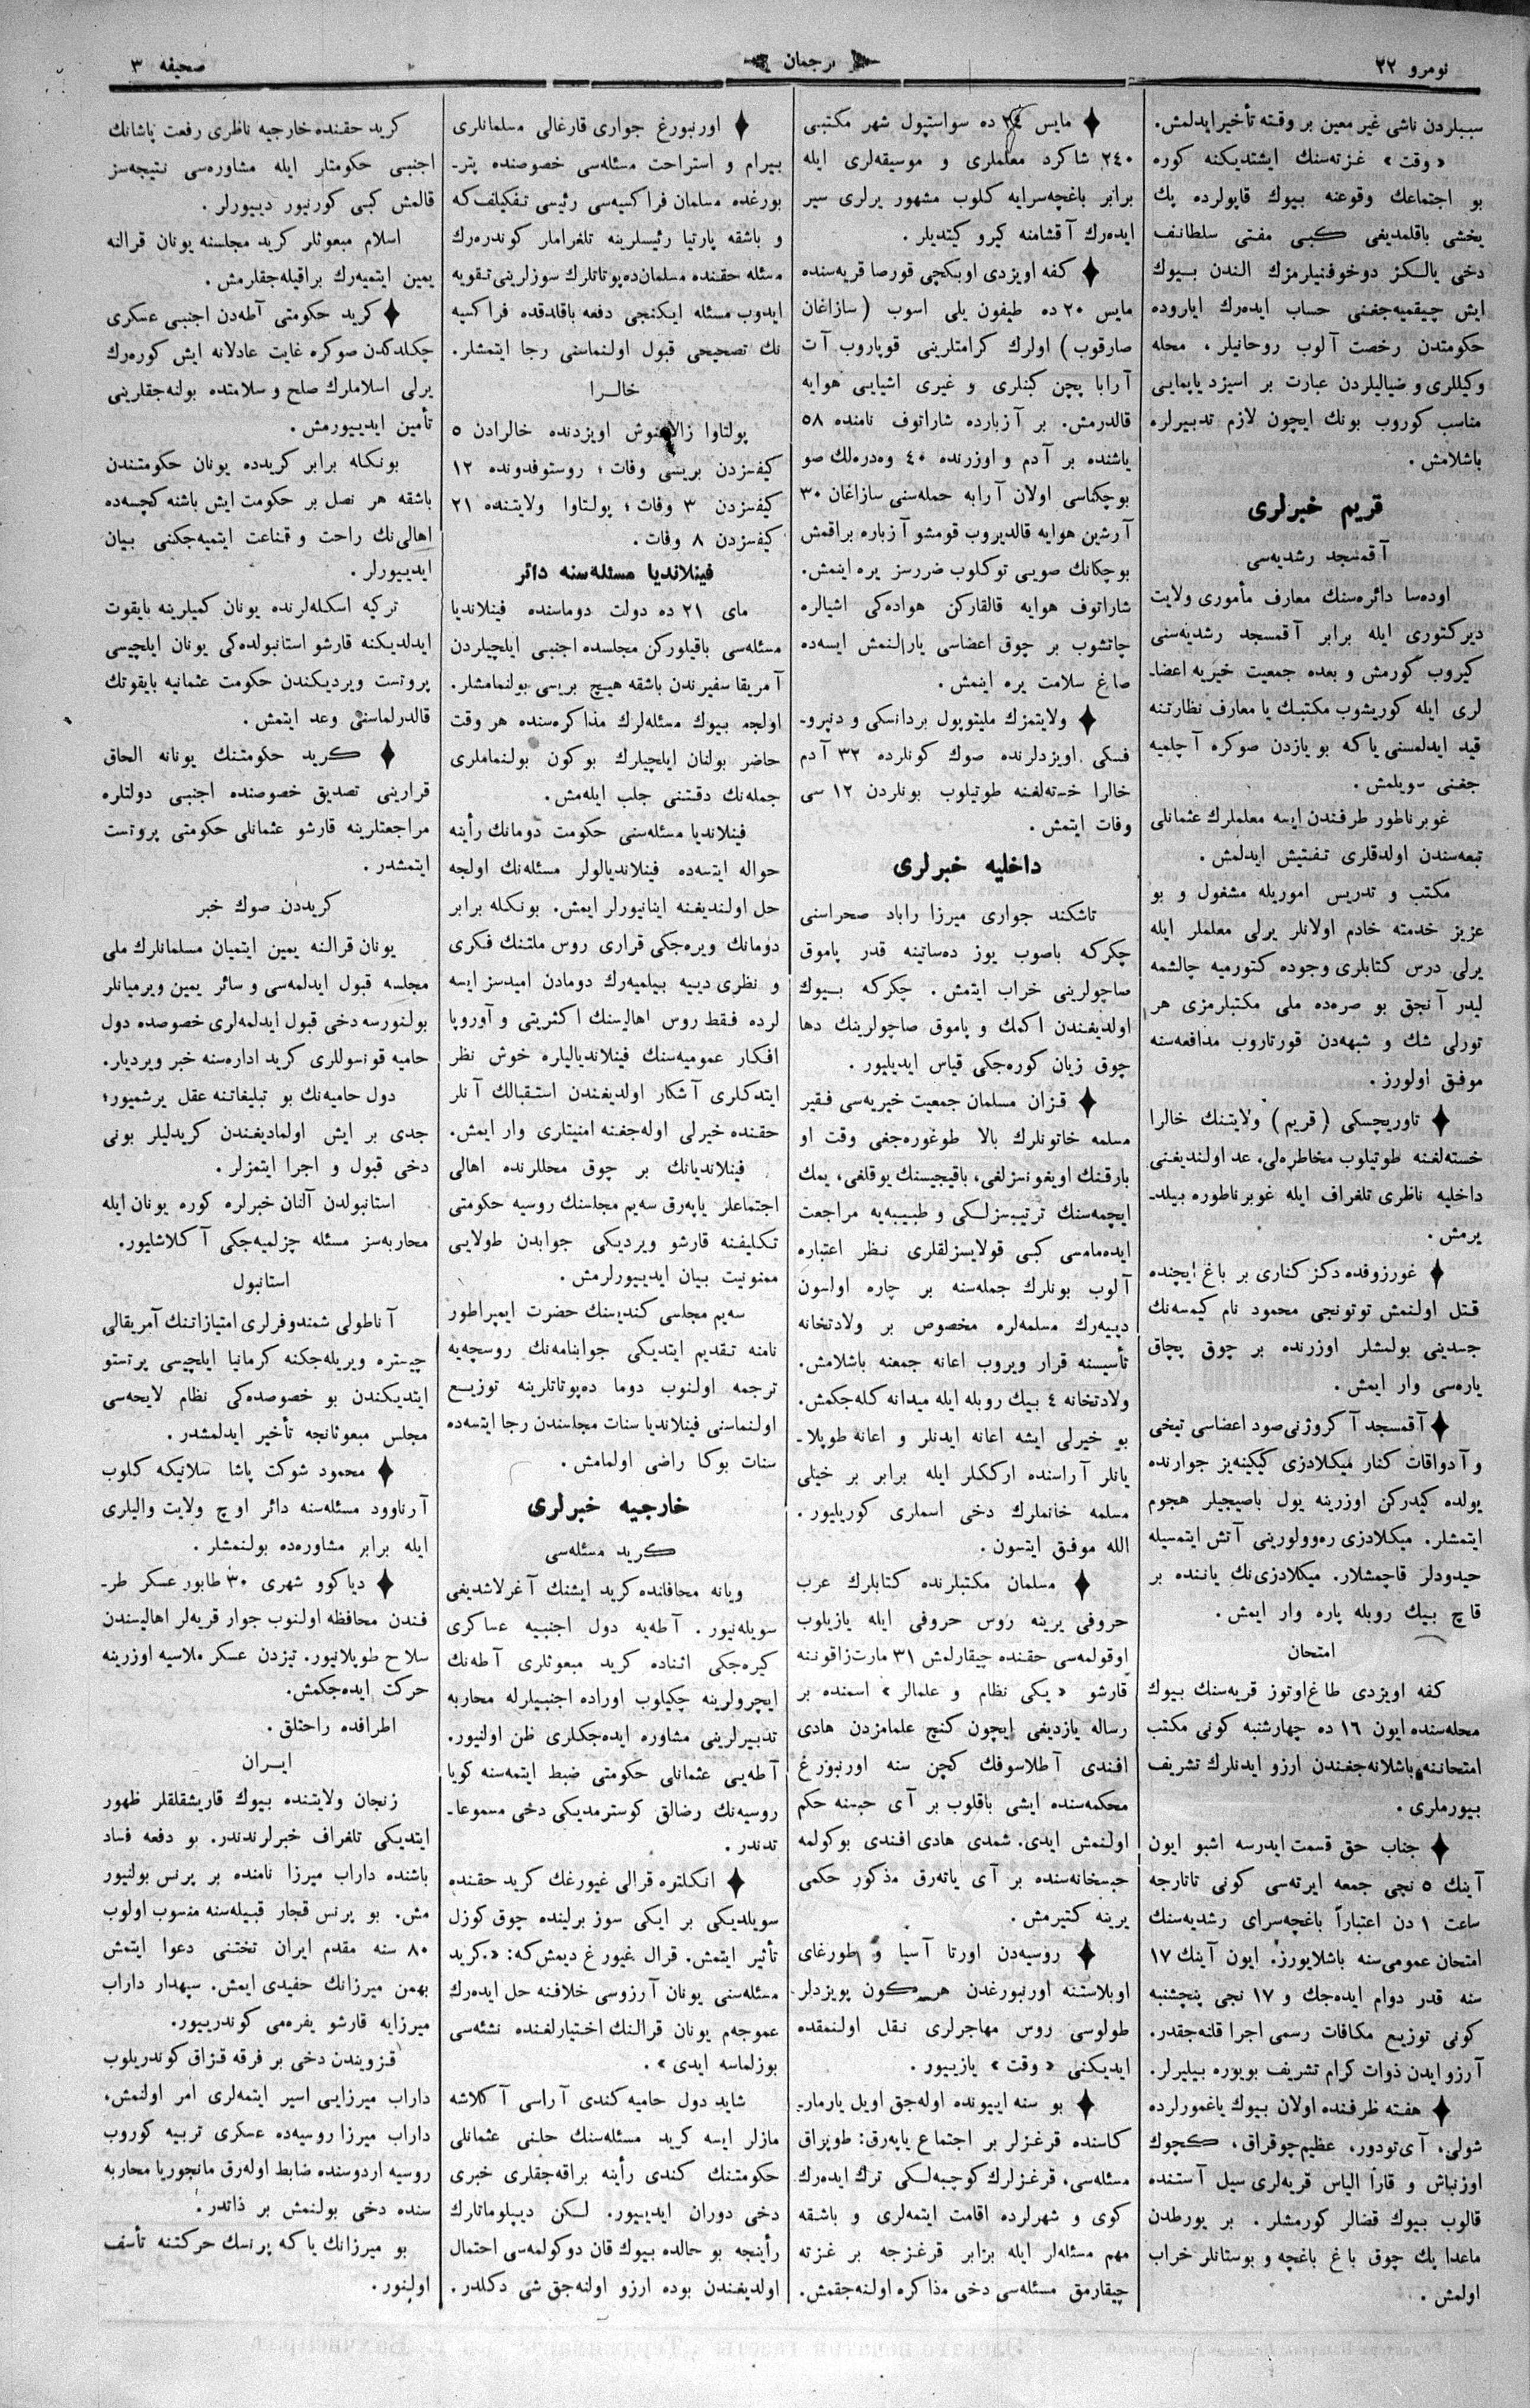 نومرو ٢٢
ترجمان
صحیفه ٣
سببلردن ناشی غیر معین بر وقته تأخیر ایدلمش.
« وقت » غزته‌سنك ایشتدیكنه كوره
بو اجتماعك وقوعنه بیوك قاپولرده پك
یخشی باقلمدیغی كبی مفتی سلطانف
دخی یالكز دوخوفنیلرمزك الندن بیوك
ایش چیقمیه‌جغنی حساب ایده‌رك ایاروده
حكومتدن رخصت آلوب روحانیلر ، محله
وكیللری و ضیالیلردن عبارت بر اسیزد یاپمایی
مناسب كوروب بونك ایچون لازم تدبیرلره
باشلامش .
قریم خبرلری
آقمسجد رشدیه‌سی
اوده‌سا دائره‌سنك معارف مأموری ولایت
دیركتوری ایله برابر آقمسجد رشدیه‌سنی
كیروب گورمش و بعده جمعیت خیریه اعضا-
لری ایله كوریشوب مكتبك یا معارف نظارتنه
قید ایدلمسنی یا كه بو یازدن صوكره آچلمیه
جغنی سویلمش .
غوبرناطور طرفندن ایسه معلملرك عثمانلی
تبعه‌سندن اولدقلری تفتیش ایدلمش .
مكتب و تدریس اموریله مشغول و بو
عزیز خدمته خادم اولانلر یرلی معلملر ایله
یرلی درس كتابلری وجوده كتورمیه چالشمه
لیدر آنجق بو صره‌ده ملی مكتبلرمزی هر
تورلی شك و شبهه‌دن قورتاروب مدافعه‌سنه
موفق اولورز .
تاوریچسكی ( قریم ) ولایتنك خالرا
خسته‌لغنه طوتیلوب مخاطره‌لی عد اولندیغنی
داخلیه ناظری تلغراف ایله غوبرناطوره بیلد-
یرمش .
غورزوفده دكز كناری بر باغ ایچنده
قتل اولنمش توتونجی محمود نام كیمسه‌نك
جسدینی بولمشلر اوزرنده بر چوق پچاق
یاره‌سی وار ایمش .
آقمسجد آكروژنی صود اعضاسی تیخی
و آدواقات كنار میكلادزی كیكینه‌یز جوارنده
یولده كیدركن اوزرینه یول باصیجیلر هجوم
ایتمشلر. میكلادزی ره‌وولورینی آتش ایتمسیله
حیدودلر قاچمشلار. میكلادزی‌نك یاننده بر
قاچ بیك روبله پاره وار ایمش .
امتحان
كفه اویزدی طاغ اوتوز قریه‌سنك بیوك
محله‌سنده ایون ١٦ ده چهارشنبه كونی مكتب
امتحاننه باشلانه‌جغندن ارزو ایدنلرك تشریف
بیورملری .
جناب حق قسمت ایدرسه اشبو ایون
آینك ٥ نجی جمعه ایرته‌سی كونی تاتارجه
ساعت ١ دن اعتباراً باغچه‌سرای رشدیه‌سنك
امتحان عمومی‌سنه باشلایورز. ایون آینك ١٧
سنه قدر دوام ایده‌جك و ١٧ نجی پنجشنبه
كونی توزیع مكافات رسمی اجرا قلنه‌جقدر.
آرزو ایدن ذوات كرام تشریف بویوره بیلیرلر.
هفته ظرفنده اولان بیوك یاغمورلرده
شولی، آی‌تودور، عظیم‌چوقراق، كچوك
اوزنباش و قارا الیاس قریه‌لری سیل آستنده
قالوب بیوك قضالر كورمشلر . بر یورطدن
ماعدا پك چوق باغ باغچه و بوستانلر خراب
اولمش .
مایس ٢٤ ده سواستپول شهر مكتبی
٢٤٠ شاكرد معلملری و موسیقه‌لری ایله
برابر باغچه‌سرایه كلوب مشهور یرلری سیر
ایده‌رك آقشامنه كیرو كیتدیلر .
كفه اویزدی اوبكچی قورصا قریه‌سنده
مایس ٢٠ ده طیفون یلی اسوب ( سازاغان
صارقوب ) اولرك كرامتلرینی قوپاروب آت
آرابا پچن كبنلری و غیری اشیایی هوایه
قالدرمش. بر آزبارده شاراتوف نامنده ٥٨
یاشنده بر آدم و اوزرنده ٤٠ وه‌دره‌لك صو
بوچكاسی اولان آرابه جمله‌سنی سازاغان ٣٠
آرشین هوایه قالدیروب قومشو آزباره براقمش
بوچكانك صویی توكلوب ضررسز یره اینمش.
شاراتوف هوایه قالقاركن هواده‌كی اشیالره
چاتشوب بر چوق اعضاسی یارالنمش ایسه‌ده
صاغ سلامت یره اینمش .
ولایتمزك ملیتوپول بردانسكی و دنپرو-
فسكی اویزدلرنده صوك كونلرده ٣٢ آدم
خالرا خسته‌لغنه طوتیلوب بونلردن ١٢ سی
وفات ایتمش .
داخلیه خبرلری
تاشكند جواری میرزا راباد صحراسنی
چكركه باصوب یوز ده‌ساتینه قدر پاموق
صاچولرینی خراب ایتمش . چكركه بیوك
اولدیغندن اكمك و پاموق صاچولرینك دها
چوق زیان كوره‌جكی قیاس ایدیلیور .
قزان مسلمان جمعیت خیریه‌سی فقیر
مسلمه خاتونلرك بالا طوغوره‌جغی وقت او
بارقنك اویغونسزلغی، باقیجیسنك یوقلغی، یمك
ایچمه‌سنك ترتیبسزلكی و طبیبه‌یه مراجعت
ایده‌مامسی كبی قولایسزلقلری نظر اعتباره
آلوب بونلرك جمله‌سنه بر چاره اولسون
دییه‌رك مسلمه‌لره مخصوص بر ولادتخانه
تأسیسنه قرار ویروب اعانه جمعنه باشلامش.
ولادتخانه ٤ بیك روبله ایله میدانه كله‌جكمش.
بو خیرلی ایشه اعانه ایدنلر و اعانه طوپلا-
یانلر آراسنده ارككلر ایله برابر بر خیلی
مسلمه خانملرك دخی اسملری كوریلیور .
الله موفق ایتسون .
مسلمان مكتبلرنده كتابلرك عرب
حروفی یرینه روس حروفی ایله یازیلوب
اوقولمه‌سی حقنده چیقارلمش ٣١ مارت زاقوننه
قارشو « یكی نظام و علمالر » اسمنده بر
رساله یازدیغی ایچون كنج علمامزدن هادی
افندی آطلاسوفك كچن سنه اورنبورغ
محكمه‌سنده ایشی باقلوب بر آی حبسنه حكم
اولنمش ایدی. شمدی هادی افندی بوكولمه
حبسخانه‌سنده بر آی یاته‌رق مذكور حكمی
یرینه كتیرمش .
روسیه‌دن اورتا آسیا و طورغای
اوبلاستنه اورنبورغدن هر كون پویزدلر
طولوسی روس مهاجرلری نقل اولنمقده
ایدیكنی « وقت » یازییور .
بو سنه ایبونده اوله‌جق اویل یارمار-
كاسنده قرغزلر بر اجتماع یاپه‌رق: طوپراق
مسئله‌سی، قرغزلرك كوچبه‌لكی ترك ایده‌رك
كوی و شهرلرده اقامت ایتمه‌لری و باشقه
مهم مسئله‌لر ایله برابر قرغزجه بر غزته
چیقارمق مسئله‌سی دخی مذاكره اولنه‌جقمش.
اورنبورغ جواری قارغالی مسلمانلری
بیرام و استراحت مسئله‌سی خصوصنده پتر-
بورغده مسلمان فراكسیه‌سی رئیسی تفكیلف‌كه
و باشقه پارتیا رئیسلرینه تلغرامالر كوندره‌رك
مسئله حقنده مسلمان ده‌پوتاتلرك سوزلرینی تقویه
ایدوب مسئله ایكنجی دفعه باقلدقده فراكسیه
نك تصحیحی قبول اولنماسنی رجا ایتمشلر.
خالرا
پولتاوا اویزدنده خالرادن ٥
كیفسزدن بریسی وفات ؛ روستوفدونده ١٢
كیفسزدن ٣ وفات ؛ پولتاوا ولایتنده ٢١
كیفسزدن ٨ وفات .
فینلاندیا مسئله‌سنه دائر
مای ٢١ ده دولت دوماسنده فینلاندیا
مسئله‌سی باقیلوركن مجلسده اجنبی ایلچیلردن
آمریقا سفیرندن باشقه هیچ بریسی بولنمامشلر.
اولجه بیوك مسئله‌لرك مذاكره‌سنده هر وقت
حاضر بولنان ایلچیلرك بوكون بولنماملری
جمله‌نك دقتنی جلب ایله‌مش .
فینلاندیا مسئله‌سنی حكومت دومانك رأینه
حواله ایتسه‌ده فینلاندیالولر مسئله‌نك اولجه
حل اولندیغنه اینانیورلر ایمش. بونكله برابر
دومانك ویره‌جكی قراری روس ملتنك فكری
و نظری دییه بیلمیه‌رك دومادن امیدسز ایسه
لرده فقط روس اهالیسنك اكثریتی و آوروپا
افكار عمومیه‌سنك فینلاندیالیلره خوش نظر
ایتدكلری آشكار اولدیغندن استقبالك آنلر
حقنده خیرلی اوله‌جغنه امنیتلری وار ایمش.
فینلاندیانك بر چوق محللرنده اهالی
اجتماعلر یاپه‌رق سه‌یم مجلسنك روسیه حكومتی
تكلیفنه قارشو ویردیكی جوابدن طولایی
ممنونیت بیان ایدییورلرمش .
سه‌یم مجلسی كندیسنك حضرت ایمپراطور
نامنه تقدیم ایتدیكی جوابنامه‌نك روسچه‌یه
ترجمه اولنوب دوما ده‌پوتاتلرینه توزیع
اولنماسنی فینلاندیا سنات مجلسندن رجا ایتسه‌ده
سنات بوكا راضی اولمامش .
خارجیه خبرلری
كرید مسئله‌سی
ویانه محافلنده كرید ایشنك آغرلاشدیغی
سویله‌نیور . آطه‌یه دول اجنبیه عساكری
كیره‌جكی اثناده كرید مبعوثلری آطه‌نك
ایچرولرینه چكیلوب اوراده اجنبیلرله محاربه
تدبیرلرینی مشاوره ایده‌جكلری ظن اولنیور.
آطه‌یی عثمانلی حكومتی ضبط ایتمه‌سنه كویا
روسیه‌نك رضالق كوسترمدیكی دخی مسموعا-
تدندر .
انكلتره قرالی غیورغك كرید حقنده
سویلدیكی بر ایكی سوز برلینده چوق كوزل
تأثیر ایتمش. قرال غیورغ دیمش كه: « كرید
مسئله‌سنی یونان آرزوسی خلافنه حل ایده‌رك
عموجه‌م یونان قرالنك اختیارلغنده نشئه‌سی
بوزلماسه ایدی » .
شاید دول حامیه كندی آراسی آكلاشه
مازلر ایسه كرید مسئله‌سنك حلنی عثمانلی
حكومتنك كندی رأینه براقه‌جقلری خبری
دخی دوران ایدییور. لكن دیپلوماتلرك
رأینجه بو حالده بیوك قان دوكولمه‌سی احتمال
اولدیغندن بوده ارزو اولنه‌جق شی دكلدر .
كرید حقنده خارجیه ناظری رفعت پاشانك
اجنبی حكومتلر ایله مشاوره‌سی نتیجه‌سز
قالمش كبی كورنیور دییورلر .
اسلام مبعوثلر كرید مجلسنه یونان قرالنه
یمین ایتمیه‌رك براقیله‌جقلرمش .
كرید حكومتی آطه‌دن اجنبی عسكری
چكلدكدن صوكره غایت عادلانه ایش كوره‌رك
یرلی اسلاملرك صلح و سلامتده بولنه‌جقلرینی
تأمین ایدییورمش .
بونكله برابر كریدده یونان حكومتندن
باشقه هر نصل بر حكومت ایش باشنه كچسه‌ده
اهالی‌نك راحت و قناعت ایتمیه‌جكنی بیان
ایدییورلر .
تركیه اسكله‌لرنده یونان كمیلرینه بایقوت
ایدلدیكنه قارشو استانبولده‌كی یونان ایلچیسی
پروتست ویردیكندن حكومت عثمانیه بایقوتك
قالدرلماسنی وعد ایتمش .
كرید حكومتنك یونانه الحاق
قرارینی تصدیق خصوصنده اجنبی دولتلره
مراجعتلرینه قارشو عثمانلی حكومتی پروتست
ایتمشدر .
كریددن صوك خبر
یونان قرالنه یمین ایتمیان مسلمانلرك ملی
مجلسه قبول ایدلمه‌سی و سائر یمین ویرمیانلر
بولنورسه دخی قبول ایدلمه‌لری خصوصده دول
حامیه قونسوللری كرید اداره‌سنه خبر ویردیلر.
دول حامیه‌نك بو تبلیغاتنه عقل یرشمیور؛
جدی بر ایش اولمادیغندن كریدلیلر بونی
دخی قبول و اجرا ایتمزلر .
استانبولدن آلنان خبرلره كوره یونان ایله
محاربه‌سز مسئله چزلمیه‌جكی آكلاشلیور.
استانبول
آناطولی شمندوفرلری امتیازاتنك آمریقالی
چیستره ویریله‌جكنه كرمانیا ایلچیسی پرتستو
ایتدیكندن بو خصوصده‌كی نظام لایحه‌سی
مجلس مبعوثانجه تأخیر ایدلمشدر.
محمود شوكت پاشا سلانیكه كلوب
آرناوود مسئله‌سنه دائر اوچ ولایت والیلری
ایله برابر مشاوره‌ده بولنمشلر .
دیاكوو شهری ٣٠ طابور عسكر طر-
فندن محافظه اولنوب جوار قریه‌لر اهالیسندن
سلاح طوپلانیور. تیزدن عسكر ملاسیه اوزرینه
حركت ایده‌جكمش.
اطرافده راحتلق .
ایران
زنجان ولایتنده بیوك قاریشقلقلر ظهور
ایتدیكی تلغراف خبرلرندندر. بو دفعه فساد
باشنده داراب میرزا نامنده بر پرنس بولنیور
مش. بو پرنس قجار قبیله‌سنه منسوب اولوب
٨٠ سنه مقدم ایران تختنی دعوا ایتمش
بهمن میرزانك حفیدی ایمش. سپهدار داراب
میرزایه قارشو یفره‌می كوندرییور.
قزویندن دخی بر فرقه قزاق كوندریلوب
داراب میرزایی اسیر ایتمه‌لری امر اولنمش.
داراب میرزا روسیه‌ده عسكری تربیه كوروب
روسیه اردوسنده ضابط اوله‌رق مانجوریا محاربه
سنده دخی بولنمش بر ذاتدر .
بو میرزانك یا كه پرنسك حركتنه تأسف
اولنور.